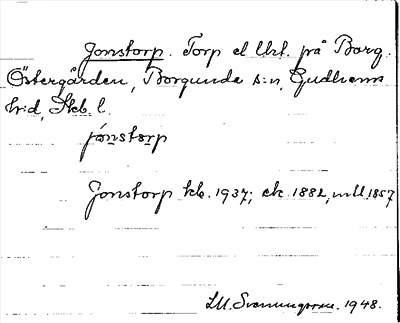 Jonstorp. Torp el. lht. på Borg.
Östergården, Borgunda s:n, Gudhems
h:d, Skb. l.
jónstɔrp
Jonstorp kb. 1937; ek. 1882, mtl 1857
S.M. Svenungsson. 1948.